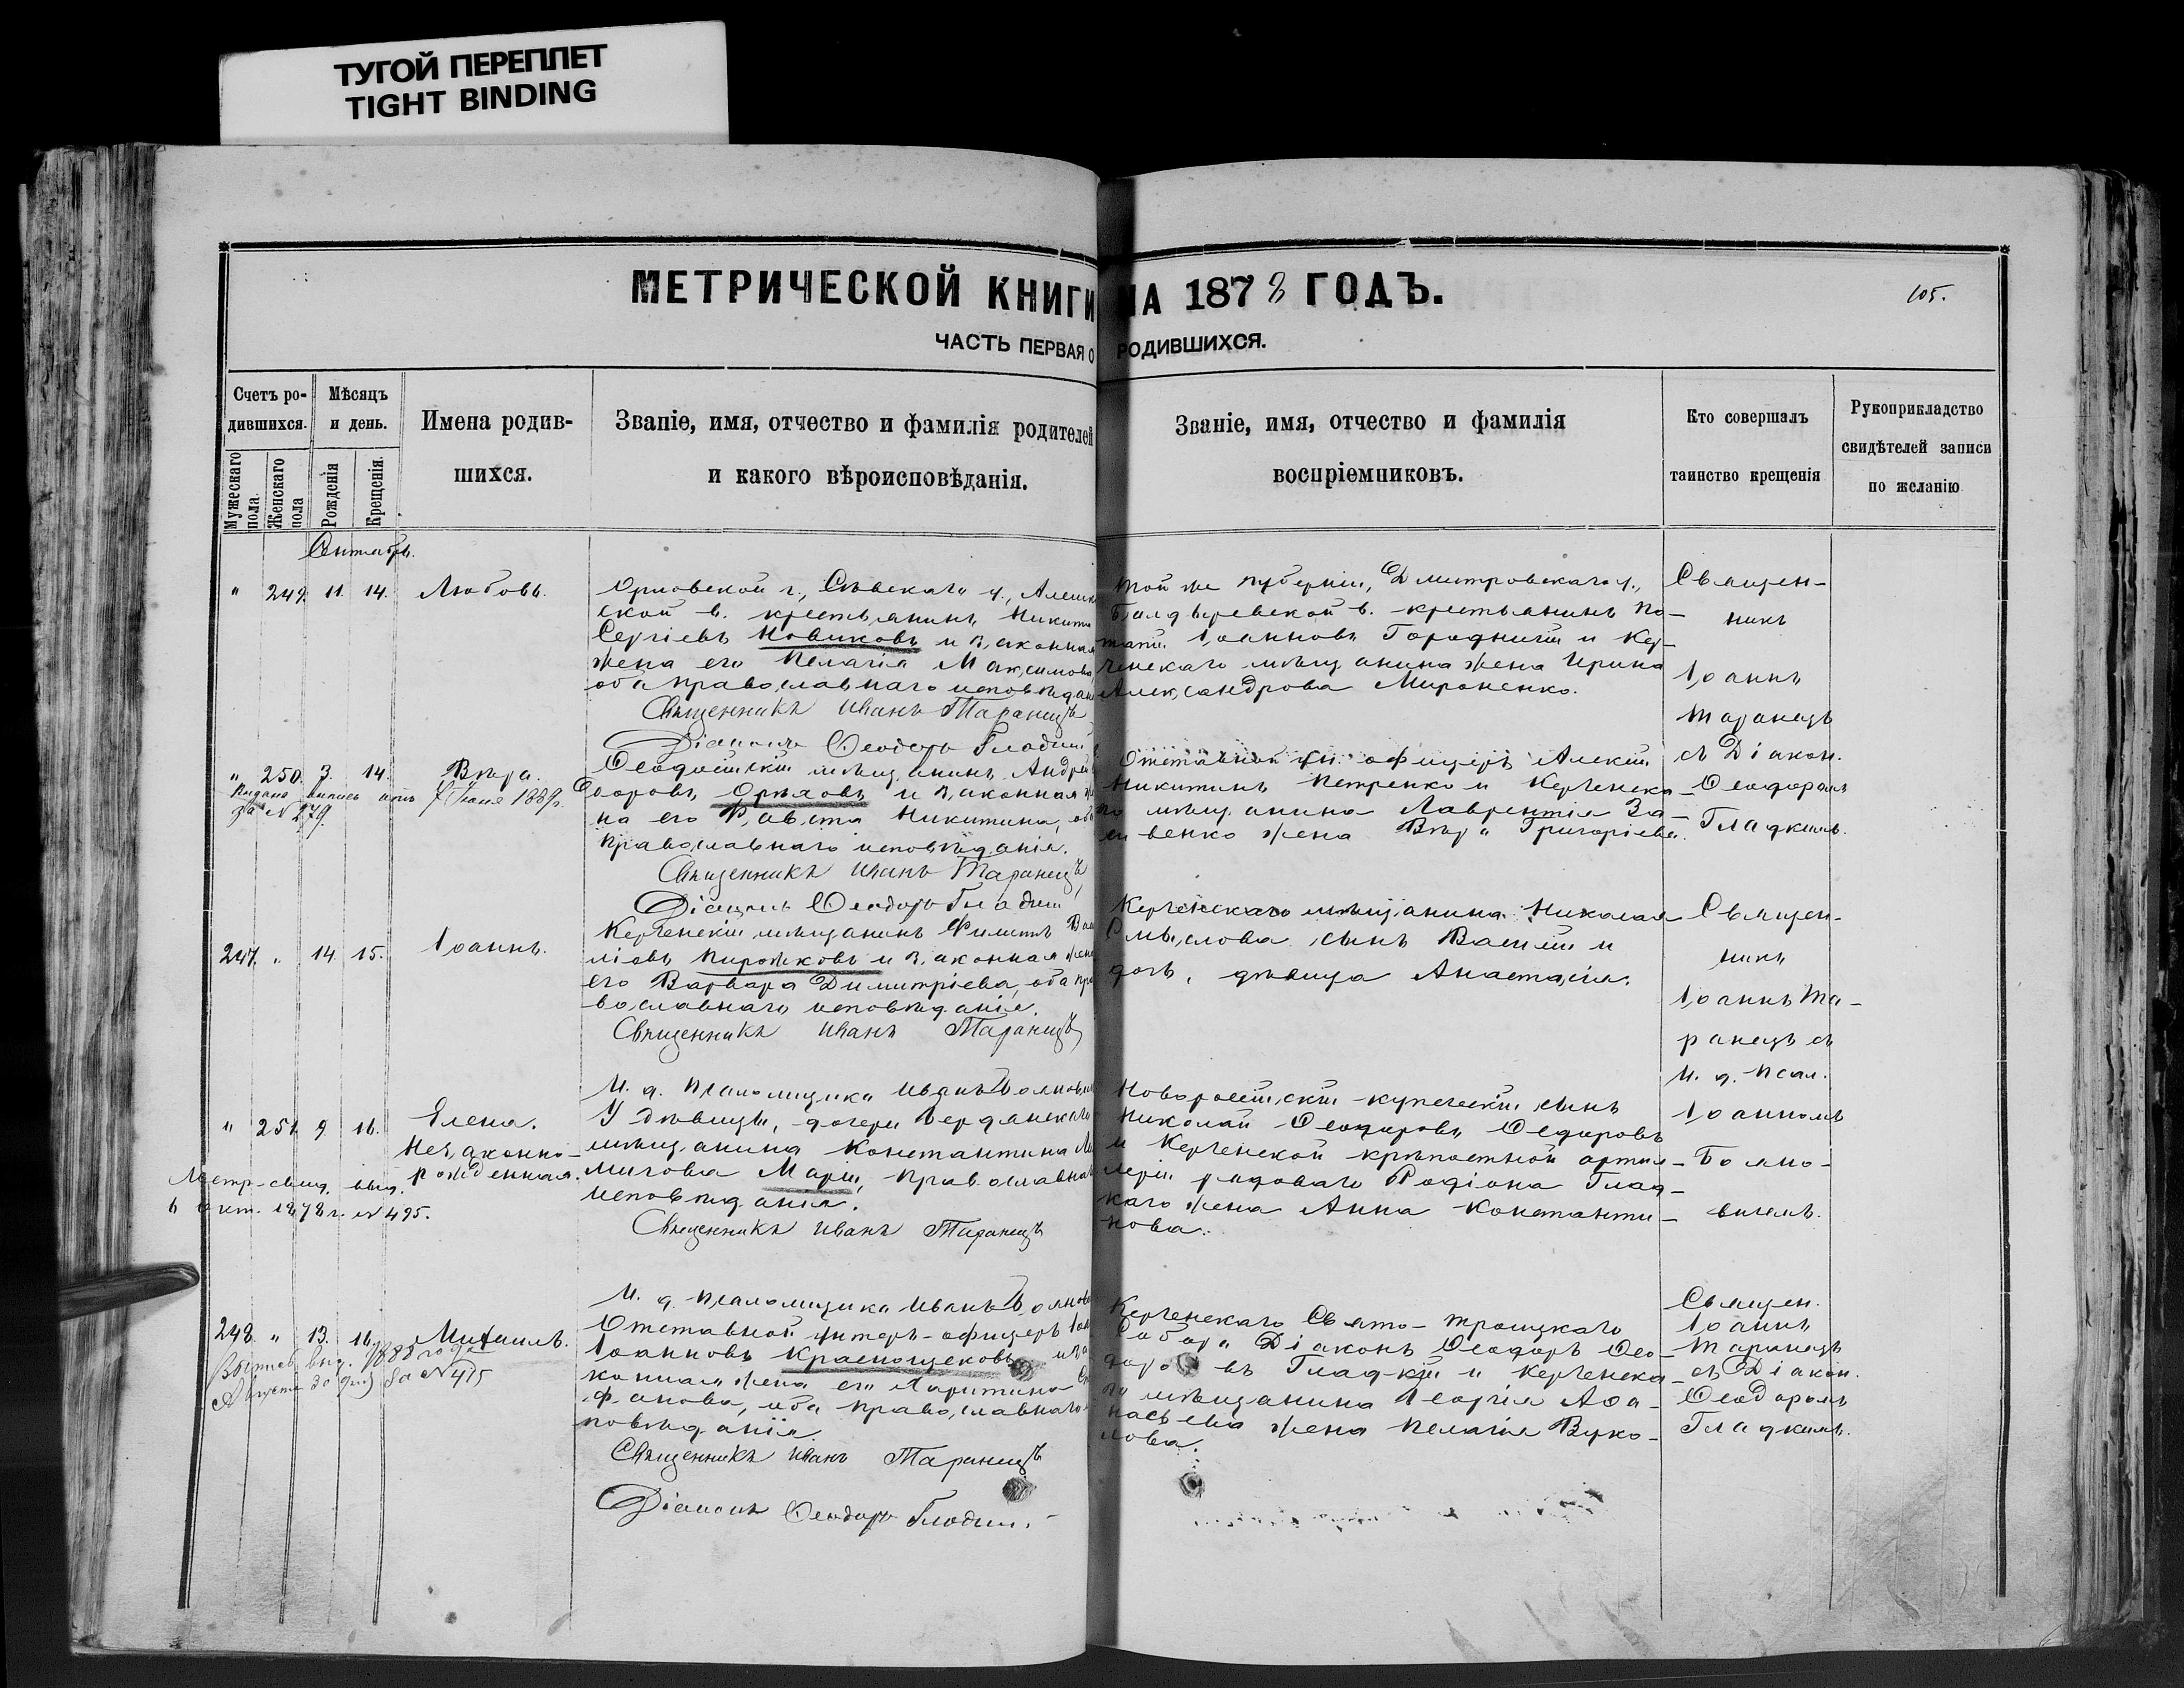 ТУГОЙ ПЕРЕПЛЕТ
TIGHT BINDING
МЕТРИЧЕСКОЙ КНИГИ НА 1878 ГОДЪ.
105.
ЧАСТЬ ПЕРВАЯ О РОДИВШИХСЯ.
Счетъ ро-
дившихся.
Мужескаго пола.
Женскаго пола
Мѣсяцъ
и день.
Рожденія
Крещенія.
Имена родив-
шихся.
Званіе, имя, отчество и фамилія родителей
и какого вѣроисповѣданія.
Званіе, имя, отчество и фамилія
воспріемниковъ.
Кто совершалъ
таинство крещенія
Рукоприкладство
свидѣтелей записи
по желанію
Сентябрь.
" 249. 11. 14. Любовь.
Орловской г., Сѣвскаго у.,
ской в. крестьянинъ Никита
Сергіевъ Новиковъ и законная
жена его Пелагія Максимова,
оба православнаго исповѣдан
Священникъ Иванъ Таранецъ
Діаконъ Ѳеодоръ Гладкій
той же губерніи, Дмитровскаго у.,
в. крестьянинъ По-
тапій Іоанновъ Городничій и Кер-
ченскаго мѣщанина жена Ирина
Александрова Мироненко.
Священ-
никъ
Іоаннъ
Таранецъ
съ Діакон.
Ѳеодоромъ
Гладкимъ.
" 250. 3. 14. Вѣра.
Выдана выпись
7 Іюня 1889 г.
за N 279.
Ѳеодосійскій мѣщанинъ Андрей
Ѳеодоровъ Орѣховъ и законная же
на его Ѳавста Никитина, об
православнаго исповѣданія.
Священникъ Иванъ Таранецъ
Діаконъ Ѳеодоръ Гладкій
Отставной ун. офицеръ Алексій
Никитинъ Петренко и Керченска-
го мѣщанина Лаврентія За-
венко жена Вѣра Григоріева.
247. " 14. 15. Іоаннъ.
Керченскій мѣщанинъ Филиппъ Ва
ліовъ Пирожковъ и законная жена
его Варвара Димитріева, оба пра
вославнаго исповѣданія.
Священникъ Иванъ Таранецъ
И. д. Псаломщика Иванъ
Керченскаго мѣщанина Николая
Смыслова сынъ Василій и
дочь, дѣвица Анастасія.
Священ-
никъ
Іоаннъ Та-
ранецъ съ
И. д. Псал.
Іоанномъ
Бояно-
вичемъ.
" 251. 9. 16. Елена.
Незаконно-
рожденная.
Метр. свид. выд.
6 окт. 1878 г. N 495.
У дѣвицы, дочери Бердянскаго
мѣщанина Константина
Маріи, православна
исповѣданія.
Священникъ Иванъ Таранецъ
И. д. Псаломщика Иванъ
Новороссійскій купеческій сынъ
Николай Ѳеодоровъ Ѳедоровъ
и Керченской крѣпостной артил-
леріи рядоваго Родіона Глад-
каго жена Анна Константи-
нова.
248. " 13. 16. Михаилъ.
Выпись выд. 1885 года
Августа 30 дня за N 415
Отставной унтеръ-офицеръ
Іоанновъ Краснощековъ и за
конная жена его Харитина
фанова, оба православнаго
повѣданія.
Священникъ Иванъ Таранецъ
Діаконъ Ѳеодоръ Гладкій.
Керченскаго Свято-Троицкаго
Собора Діаконъ Ѳеодоръ Ѳео-
доровъ Гладкій и Керченска-
го мѣщанина Георгія Аѳа-
насьева жена Пелагія Вуко-
лова.
Священ.
Іоаннъ
Таранецъ
съ Діакон.
Ѳеодоромъ
Гладкимъ.